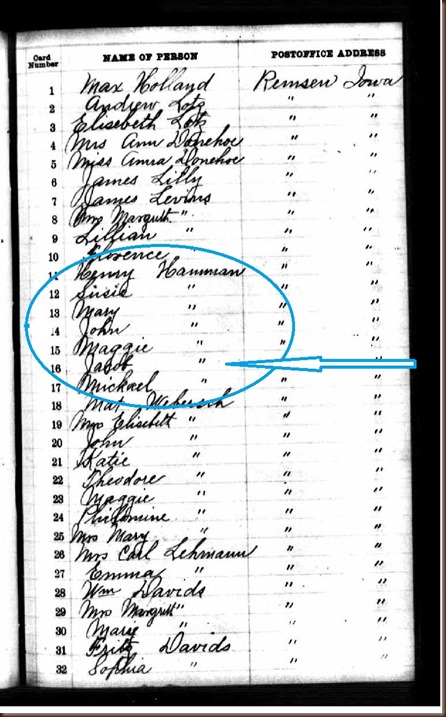 Card Number NAME OF PERSON POSTOFFICE ADDRESS
1 Max Holland Remsen Iowa
2 Andrew Lotz " "
3 Elisebeth Lotz " "
4 Mrs Ann Donehoe " "
5 Miss Anna Donehoe " "
6 James Lilly " "
7 James Levins " "
8 Mrs Margrett " " "
9 Lillian " " "
10 Florence " " "
11 Henry Hamman " "
12 Susie " " "
13 Mary " " "
14 John " " "
15 Maggie " " "
16 Jacob " " "
17 Mickael " " "
18 Mat " "
19 Mrs Elisebett " " "
20 John " " "
21 Katie " " "
22 Theodore " " "
23 Maggie " " "
24 Philomine " " "
25 Mrs Mary " " "
26 Mrs Carl Lehmann " "
27 Emma " " "
28 Wm Davids " "
29 Mrs Margrett " " "
30 Marie " " "
31 Fritz Davids " "
32 Sophia " " "